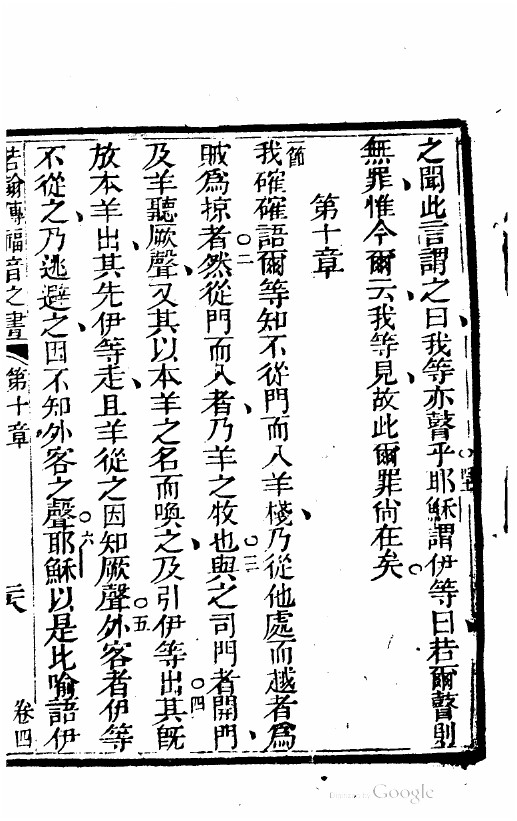 之聞此言謂之曰我等亦瞽乎耶穌謂伊等曰若爾瞽則
無罪惟今爾云我等見故此爾罪尚在矣
第十章
節我確確語爾等知不從門而入羊棧乃從他處而越者為
賊為掠者○二然從門而入者乃羊之牧也○三與之司門者開門
及羊聽厥聲又其以本羊之名而喚之及引伊等出○四其既
放本羊出其先伊等走且羊從之因知厥聲○五外客者伊等
不從之乃逃避之因不知外客之聲○六耶穌以是比喻語伊
若翰傳福音之書 第十章 卷四
Google